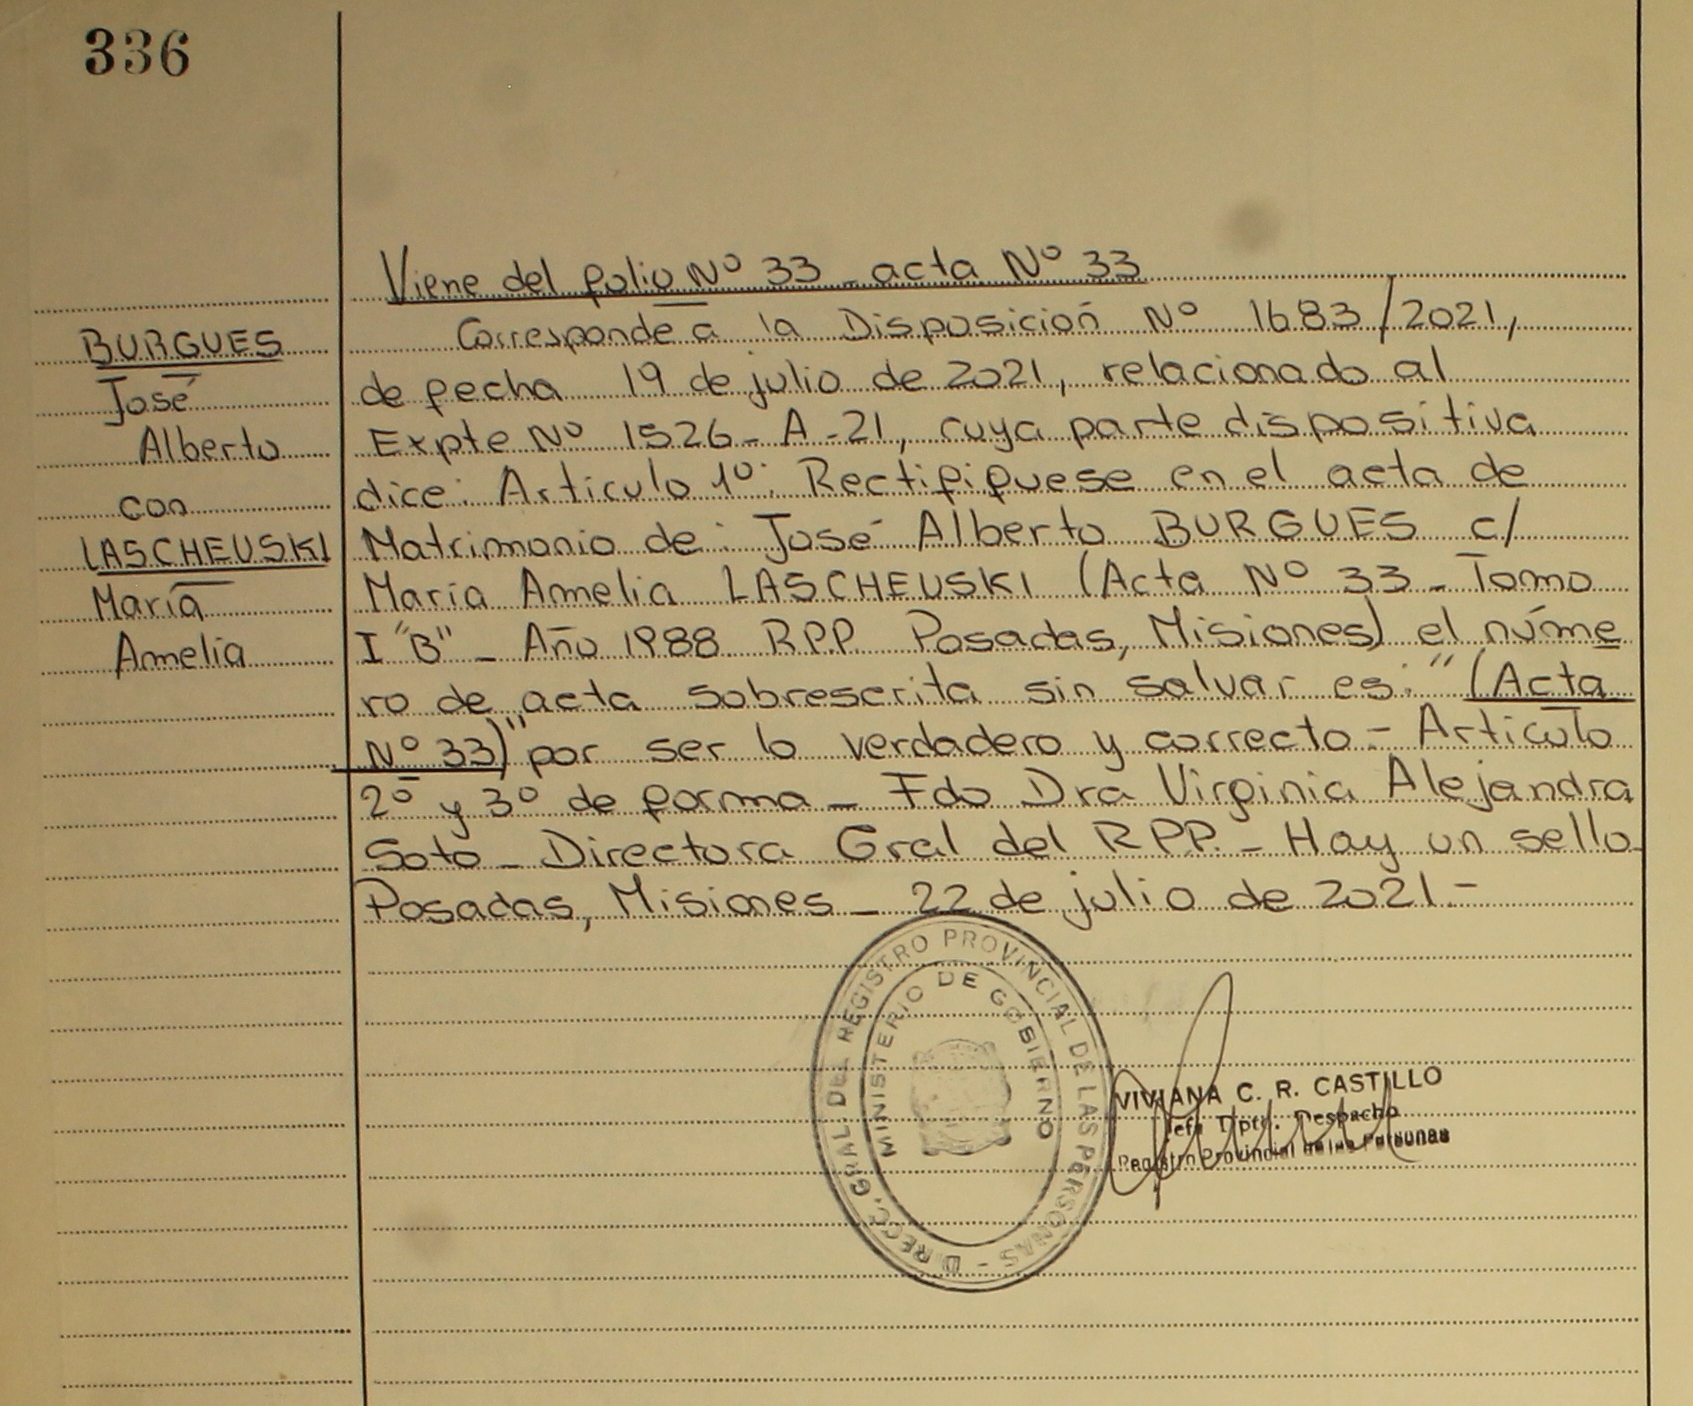 336
BURGUES
José
Alberto
con
LASCHEUSKI
María
Amelia
Viene del folio Nº 33 - acta Nº 33
Corresponde a la Disposición Nº 1683/2021,
de fecha 19 de julio de 2021, relacionado al
Expte Nº 1526 - A - 21, cuya parte dispositiva
dice: Articulo 1º: Rectifiquese en el acta de
Matrimonio de: José Alberto BURGUES c/
María Amelia LASCHEUSKI (Acta Nº 33 - Tomo
I "B" - Año 1988 R.P.P. Posadas, Misiones) el núme
ro de acta sobrescrita sin salvar es: "(Acta
Nº 33)" por ser lo verdadero y correcto - Articulo
2º y 3º de forma - Fdo Dra Virginia Alejandra
Soto - Directora Gral del RPP. - Hay un sello
Posadas, Misiones - 22 de julio de 2021 -
DIRECC. GRAL. DEL REGISTRO PROVINCIAL DE LAS PERSONAS -
MINISTERIO DE GOBIERNO
VIVIANA C. R. CASTILLO
Jefa Dpto. Despacho
Registro Provincial de las Personas